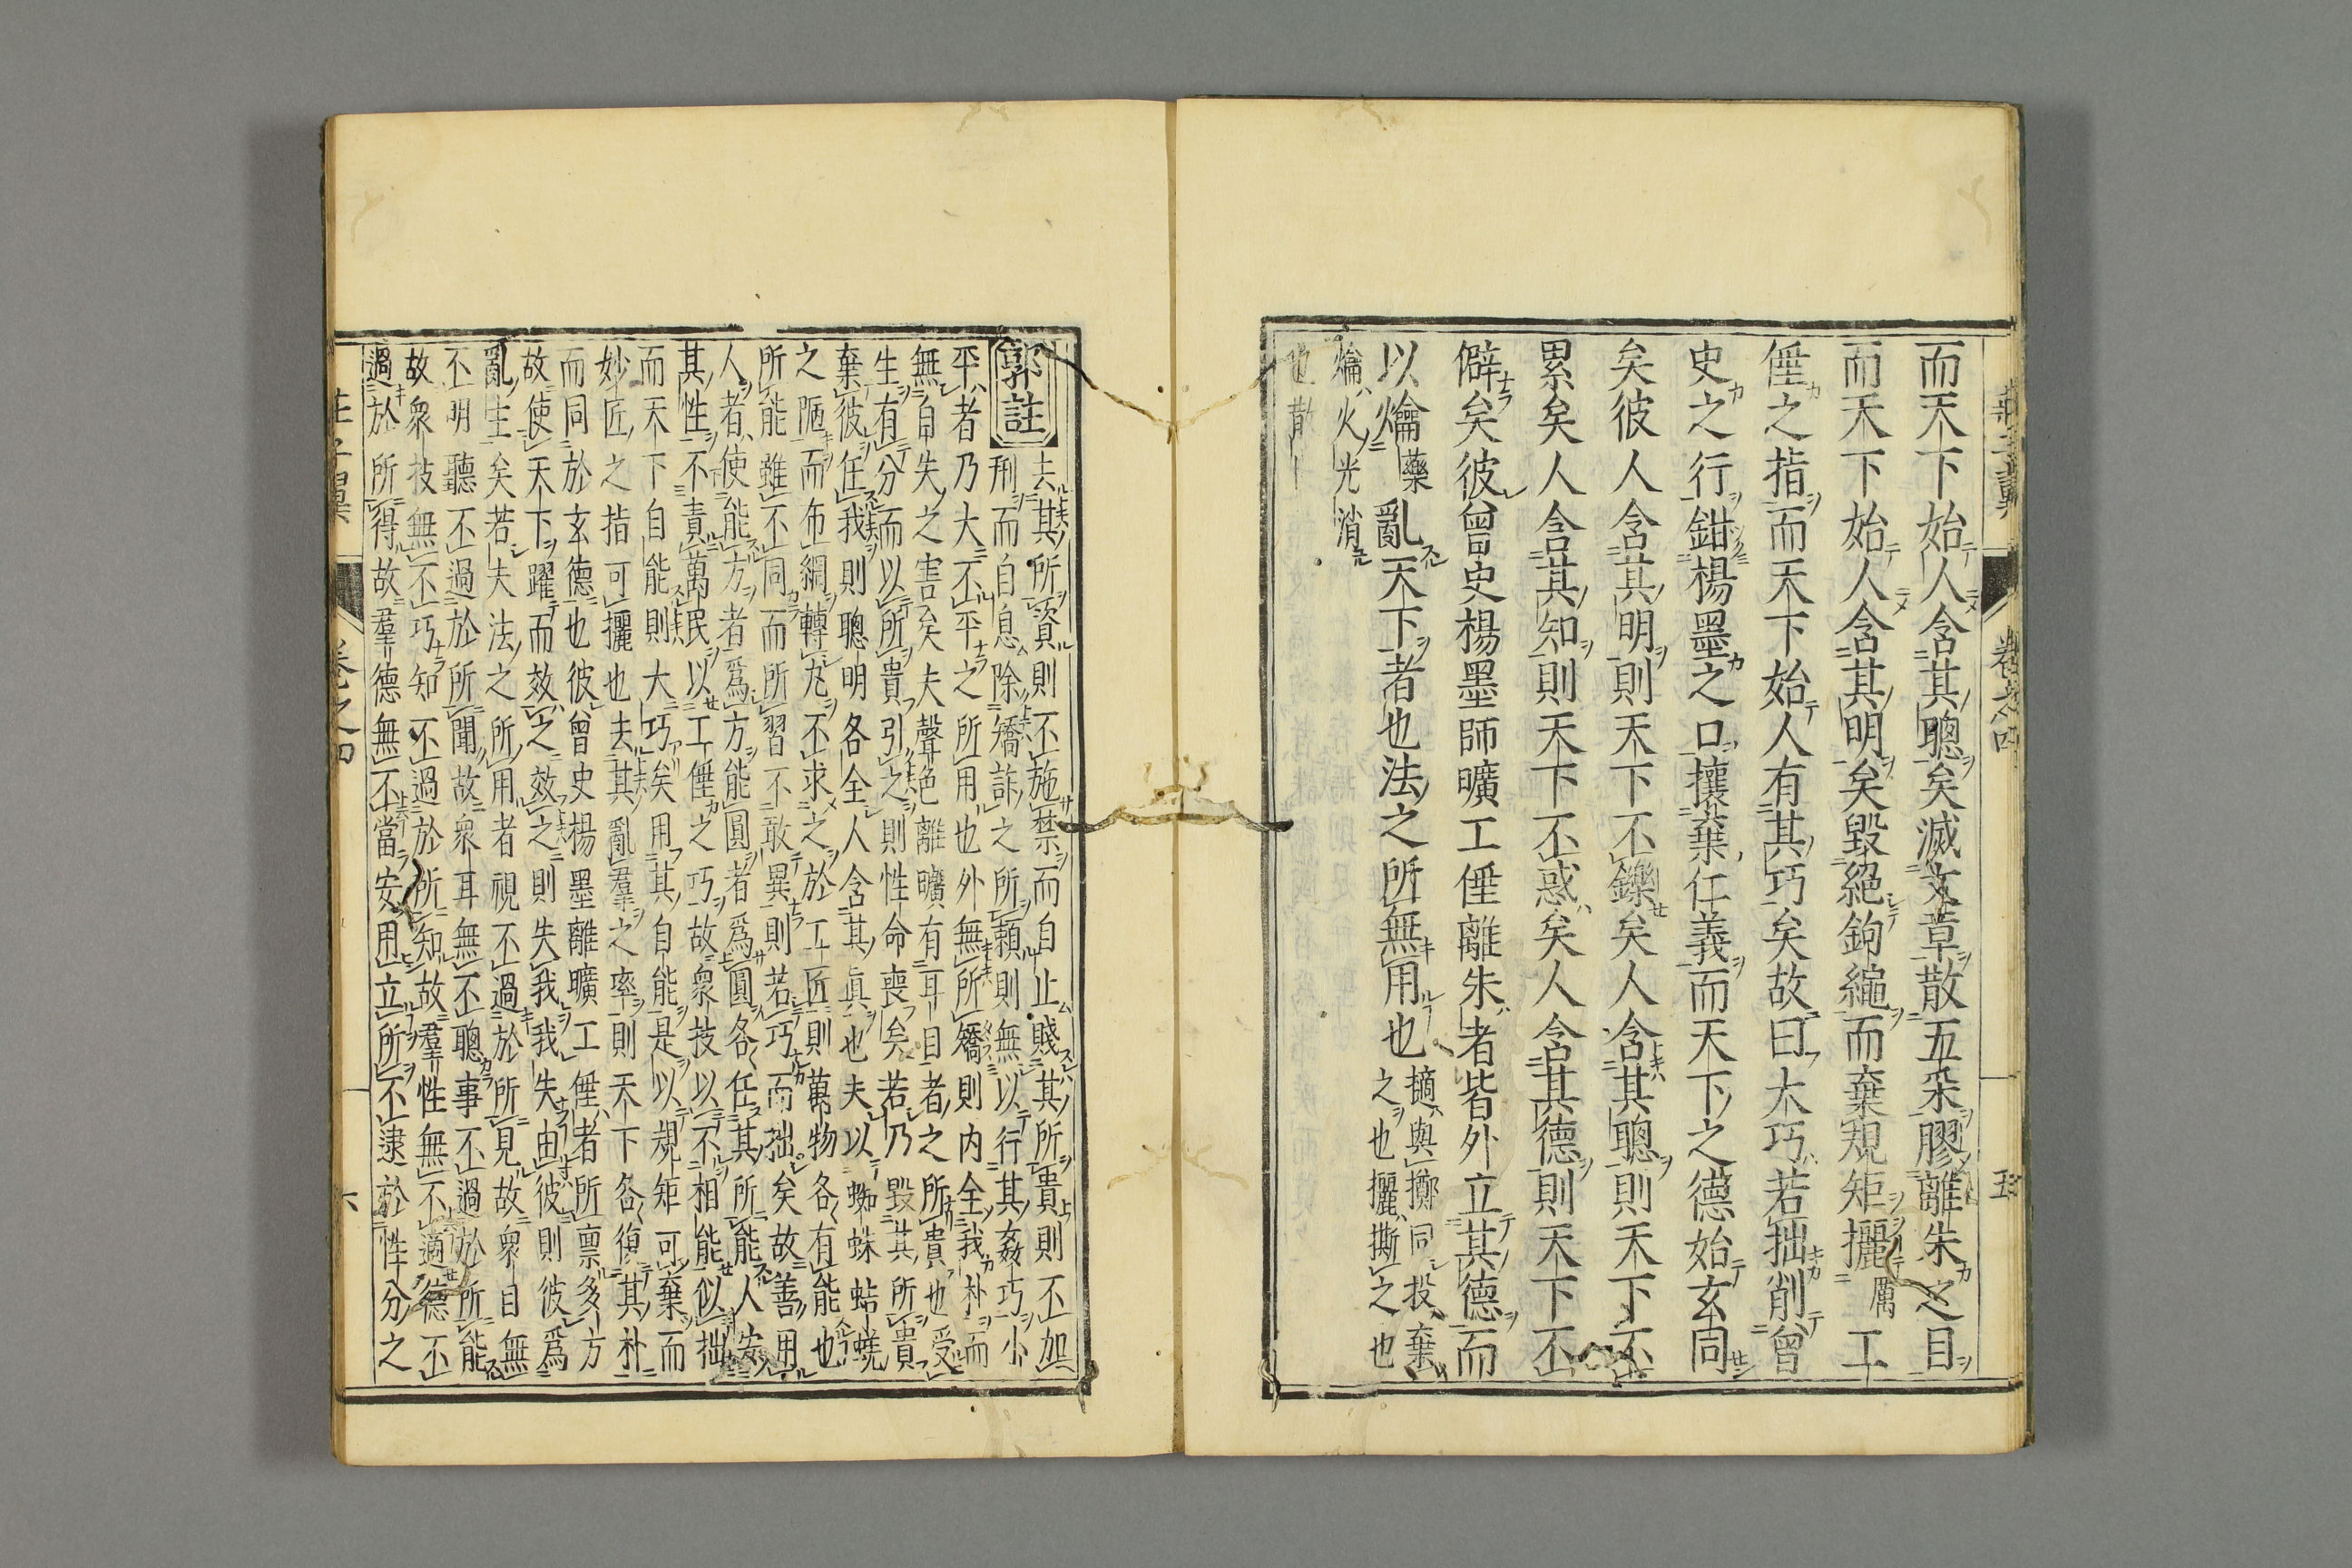 莊子翼 卷之四 五
而天下始人含其聰矣滅文章散五采膠離朱之目
而天下始人含其明矣毀絕鉤繩而棄規矩攦厲工
倕之指而天下始人有其巧矣故曰大巧若拙削曾
史之行鉗楊墨之口攘棄仁義而天下之德始玄同
矣彼人含其明則天下不鑠矣人含其聰則天下不
累矣人含其知則天下不惑矣人含其德則天下不
僻矣彼曾史楊墨師曠工倕離朱者皆外立其德而
以爚藥亂天下者也法之所無用也
擿與擲同投棄
之也攦撕之也
爚火光消
也散
郭註
去其所資則不施禁而自止賤其所貴則不加
刑而自息除矯詐之所賴則無以行其姦巧小
平者乃大不平之所用也外無所矯則内全我朴而
無自失之害矣夫聲色離曠有耳目者之所貴也受
生有分而以所貴引之則性命喪矣若乃毀其所貴
棄彼任我則聰明各全人含其眞也夫以蜘蛛蛣蜣
之陋而布網轉丸不求之於工匠則萬物各有能也
所能雖不同而所習不敢異則若巧而拙矣故善用
人者使能方者爲方能圓者爲圓各任其所能人安
其性不責萬民以工倕之巧故衆技以不相能似拙
而天下自能則大巧矣用其自能是以規矩可棄而
妙匠之指可攦也去其亂羣之率則天下各復其朴
而同於玄德也彼曾史楊墨離曠工倕者所禀多方
故使天下躍而效之效之則失我我失由彼則彼爲
亂主矣若夫法之所用者視不過於所見故衆目無
不明聽不過於所聞故衆耳無不聰事不過於所能
故衆技無不巧知不過於所知故羣性無不適德不
過於所得故羣德無不當安用立所不逮於性分之
莊子翼 卷之四 六